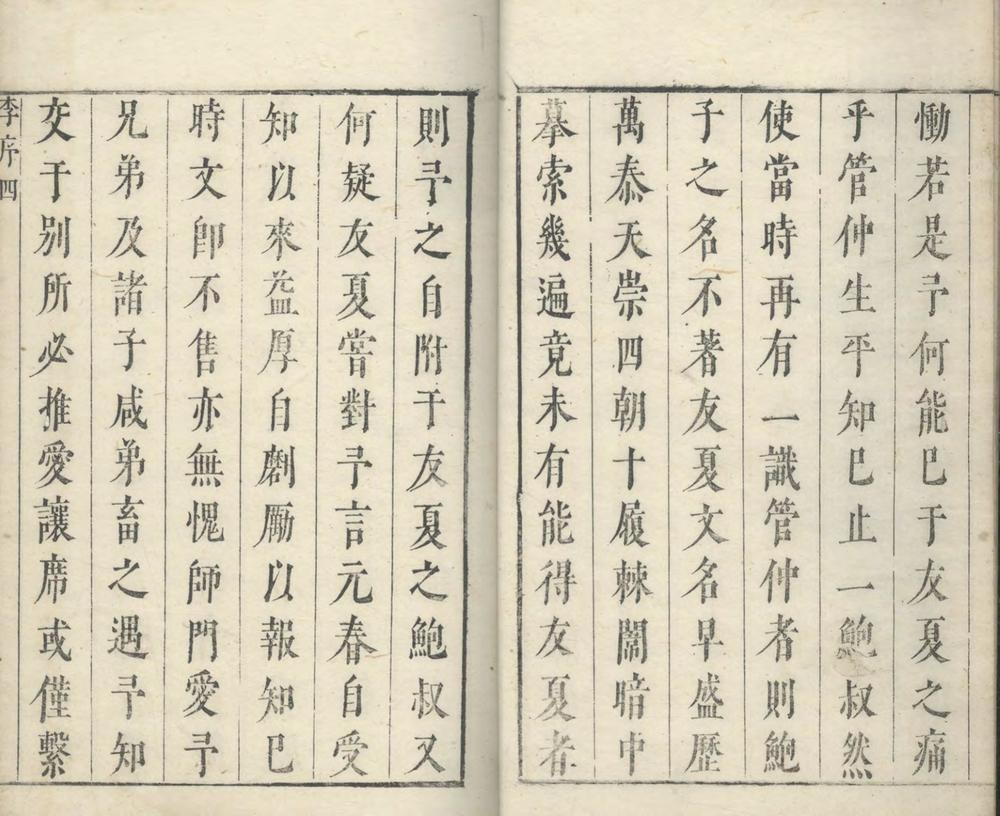 慟若是予何能巳于友夏之痛
乎管仲生平知巳止一鮑叔然
使當時再有一識管仲者則鮑
子之名不著友夏文名早盛歷
萬泰天崇四朝十履棘闈暗中
摹索幾遍竟未有能得友夏者
則予之自附于友夏之鮑叔又
何疑友夏嘗對予言元春自受
知以來益厚自劘厲以報知巳
時文卽不售亦無愧師門愛予
兄弟及諸子咸弟畜之遇予知
交于別所必推愛讓席或僅繫
李序 四